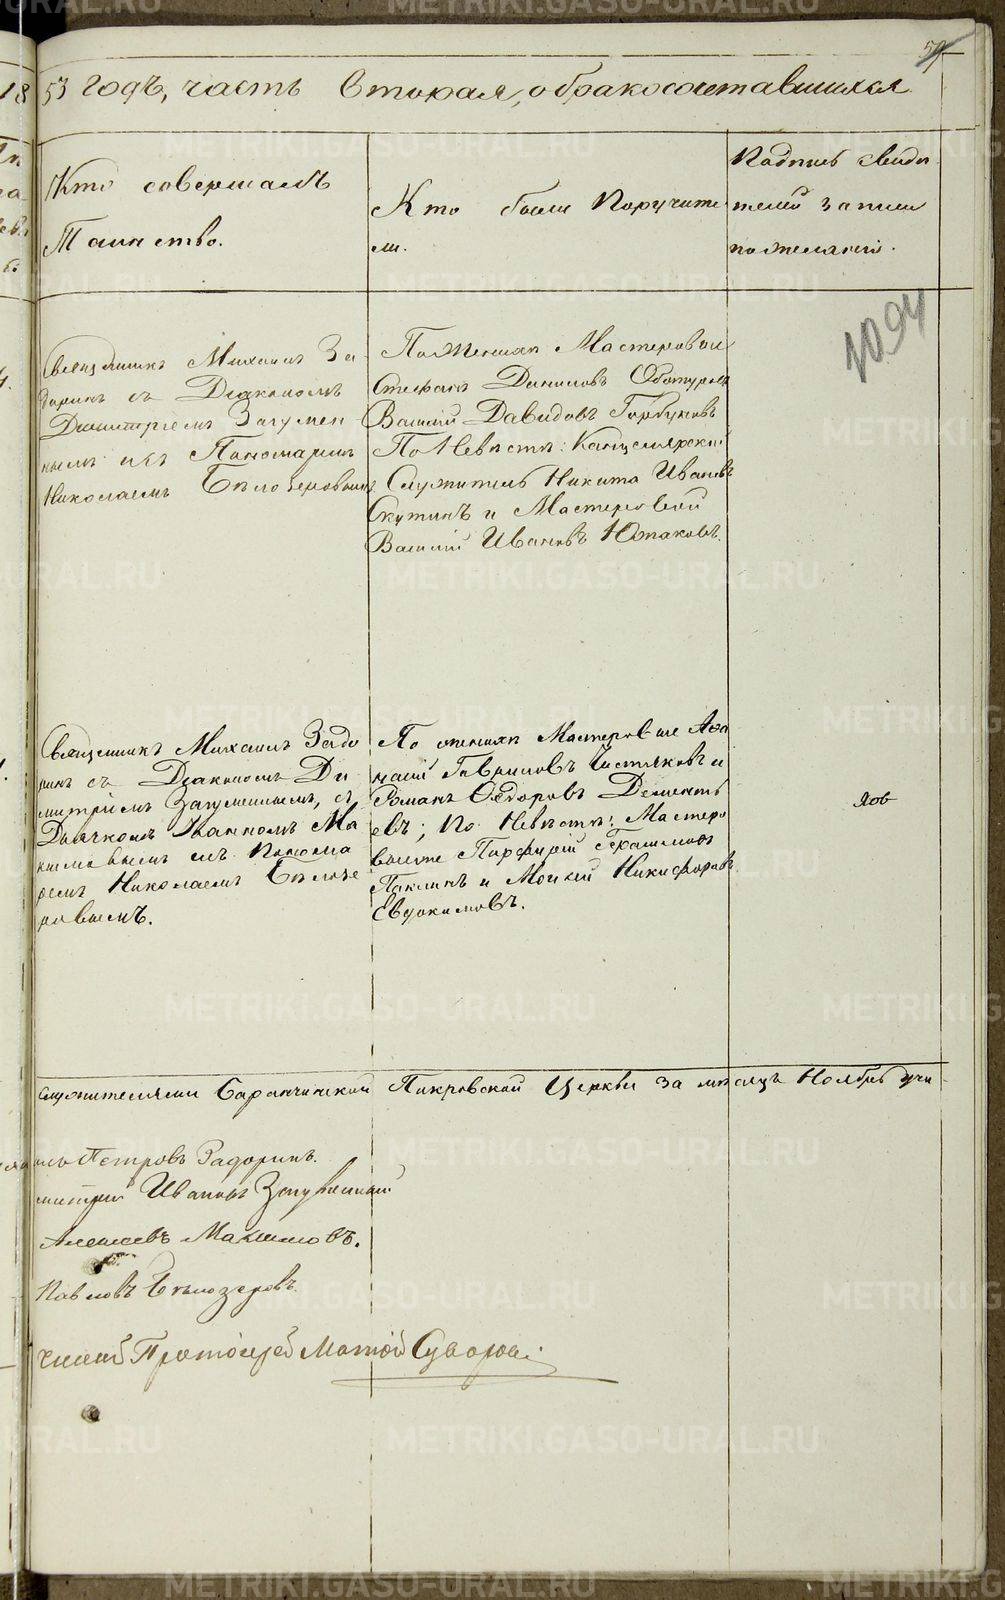 53 годъ, часть вторая, о бракосочетавшихся
Кто совершалъ
Таинство.
Кто были Поручите
ли.
Подпись свиде
телей записи
по желанію.
1094
Священникъ Михаилъ За
доринъ съ Діакономъ
Димитріемъ Загумен
нымъ и съ Пономаремъ
Николаемъ Белозеровымъ
По Женихѣ Мастеровые
Стефанъ Даниловъ
Василій Давидовъ Горбуновъ
По Невѣстѣ: Канцелярскій
Служитель Никита Ивановъ
Скутинъ и Мастеровой
Василій Ивановъ Южаковъ.
Священникъ Михаилъ Задо
ринъ съ Діакономъ Ди
митріемъ Загуменнымъ, съ
Дьячкомъ Иваномъ Ма
ксимовымъ и съ Понома
ремъ Николаемъ Белозе
ровымъ.
По женихѣ Мастеровые Афа
насій Гавриловъ Чистяковъ и
Романъ Ѳедоровъ Дементь
евъ; По Невѣстѣ: Мастеро
вые Порфирій Герасимовъ
Паклинъ и Моисей Никифоровъ
Евдокимовъ.
служителями Баранчинской Покровской Церкви за мѣсяцъ Ноябрь учи
илъ Петровъ Задоринъ.
митрий Ивановъ Загуменный
Алексеевъ Максимовъ.
Павловъ Белозеровъ
Протоіерей Суворовъ
METRIKI.GASO-URAL.RU